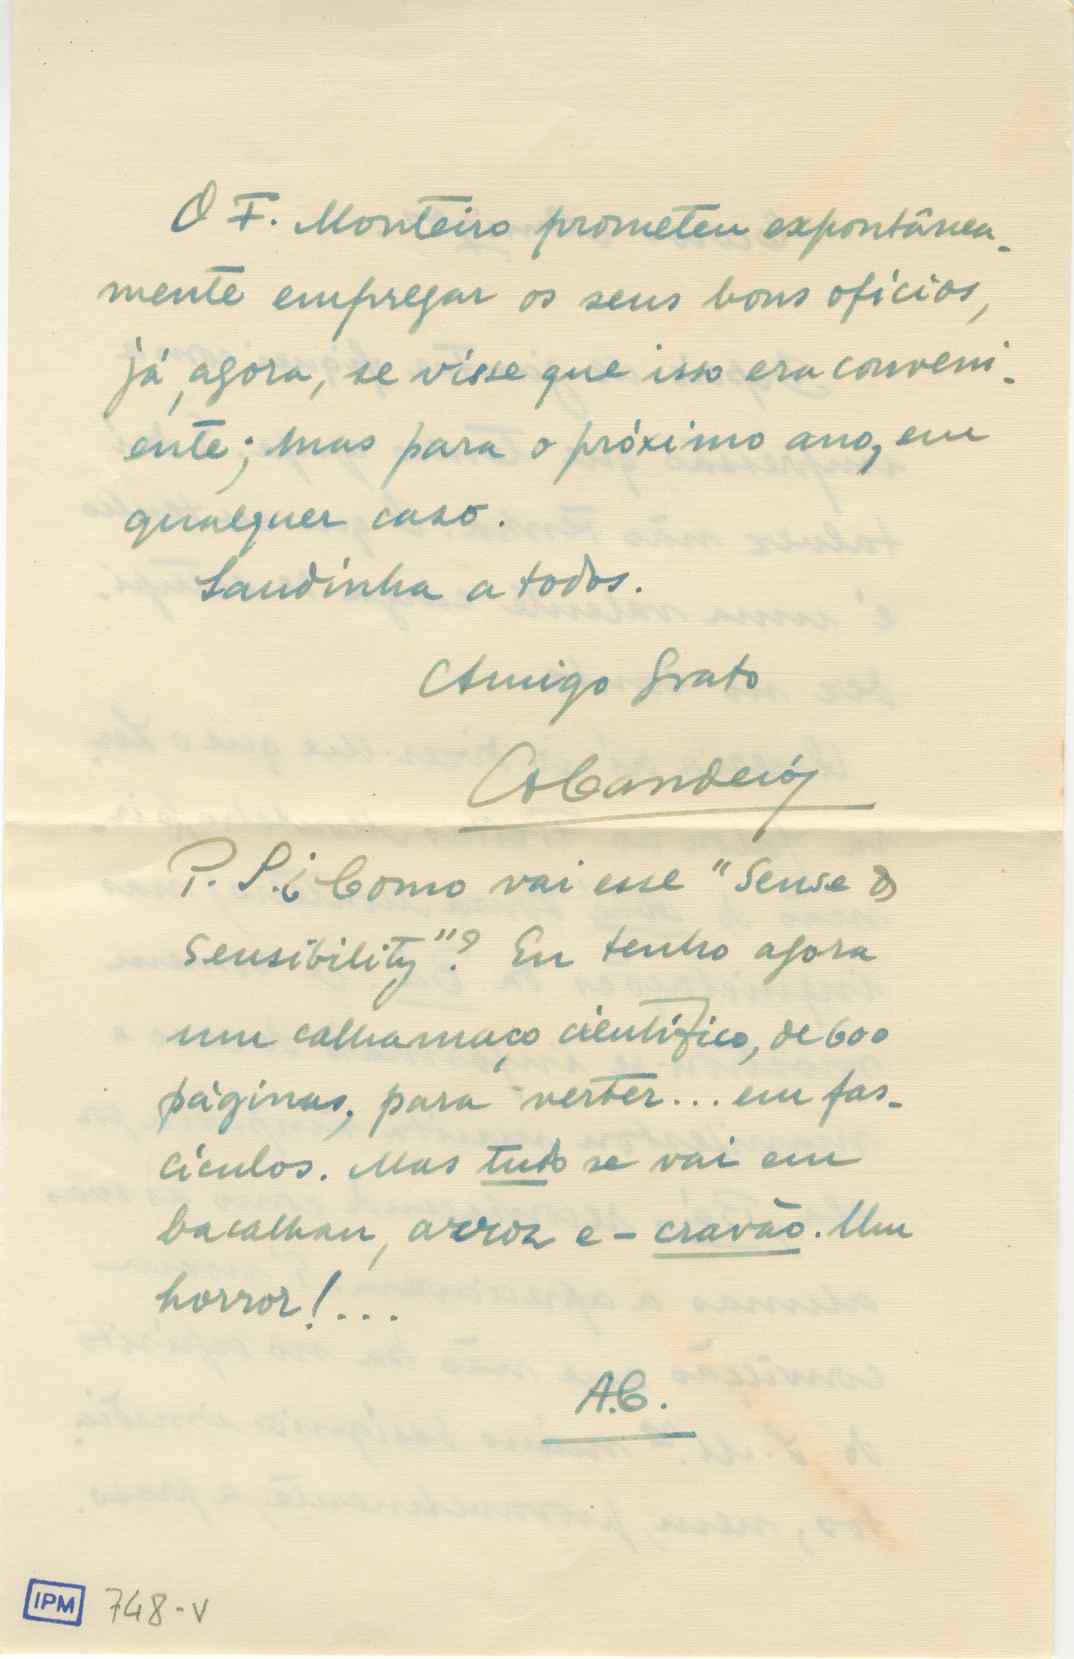 O F. Monteiro prometeu expontânea-
mente empregar os seus bons ofícios,
já, agora, se visse que isso era conveni-
ente; mas para o próximo ano, em
qualquer caso.
Saudinha a todos.
Amigo Grato
P. S. ¿ Como vai esse "Sense &
Sensibility"? Eu tenho agora
um calhamaço científico, de 600
páginas, para verter... em fas-
cículos. Mas tudo se vai em
bacalhau, arroz e - cravão. Um
horror!...
A.C.
IPM 748-V